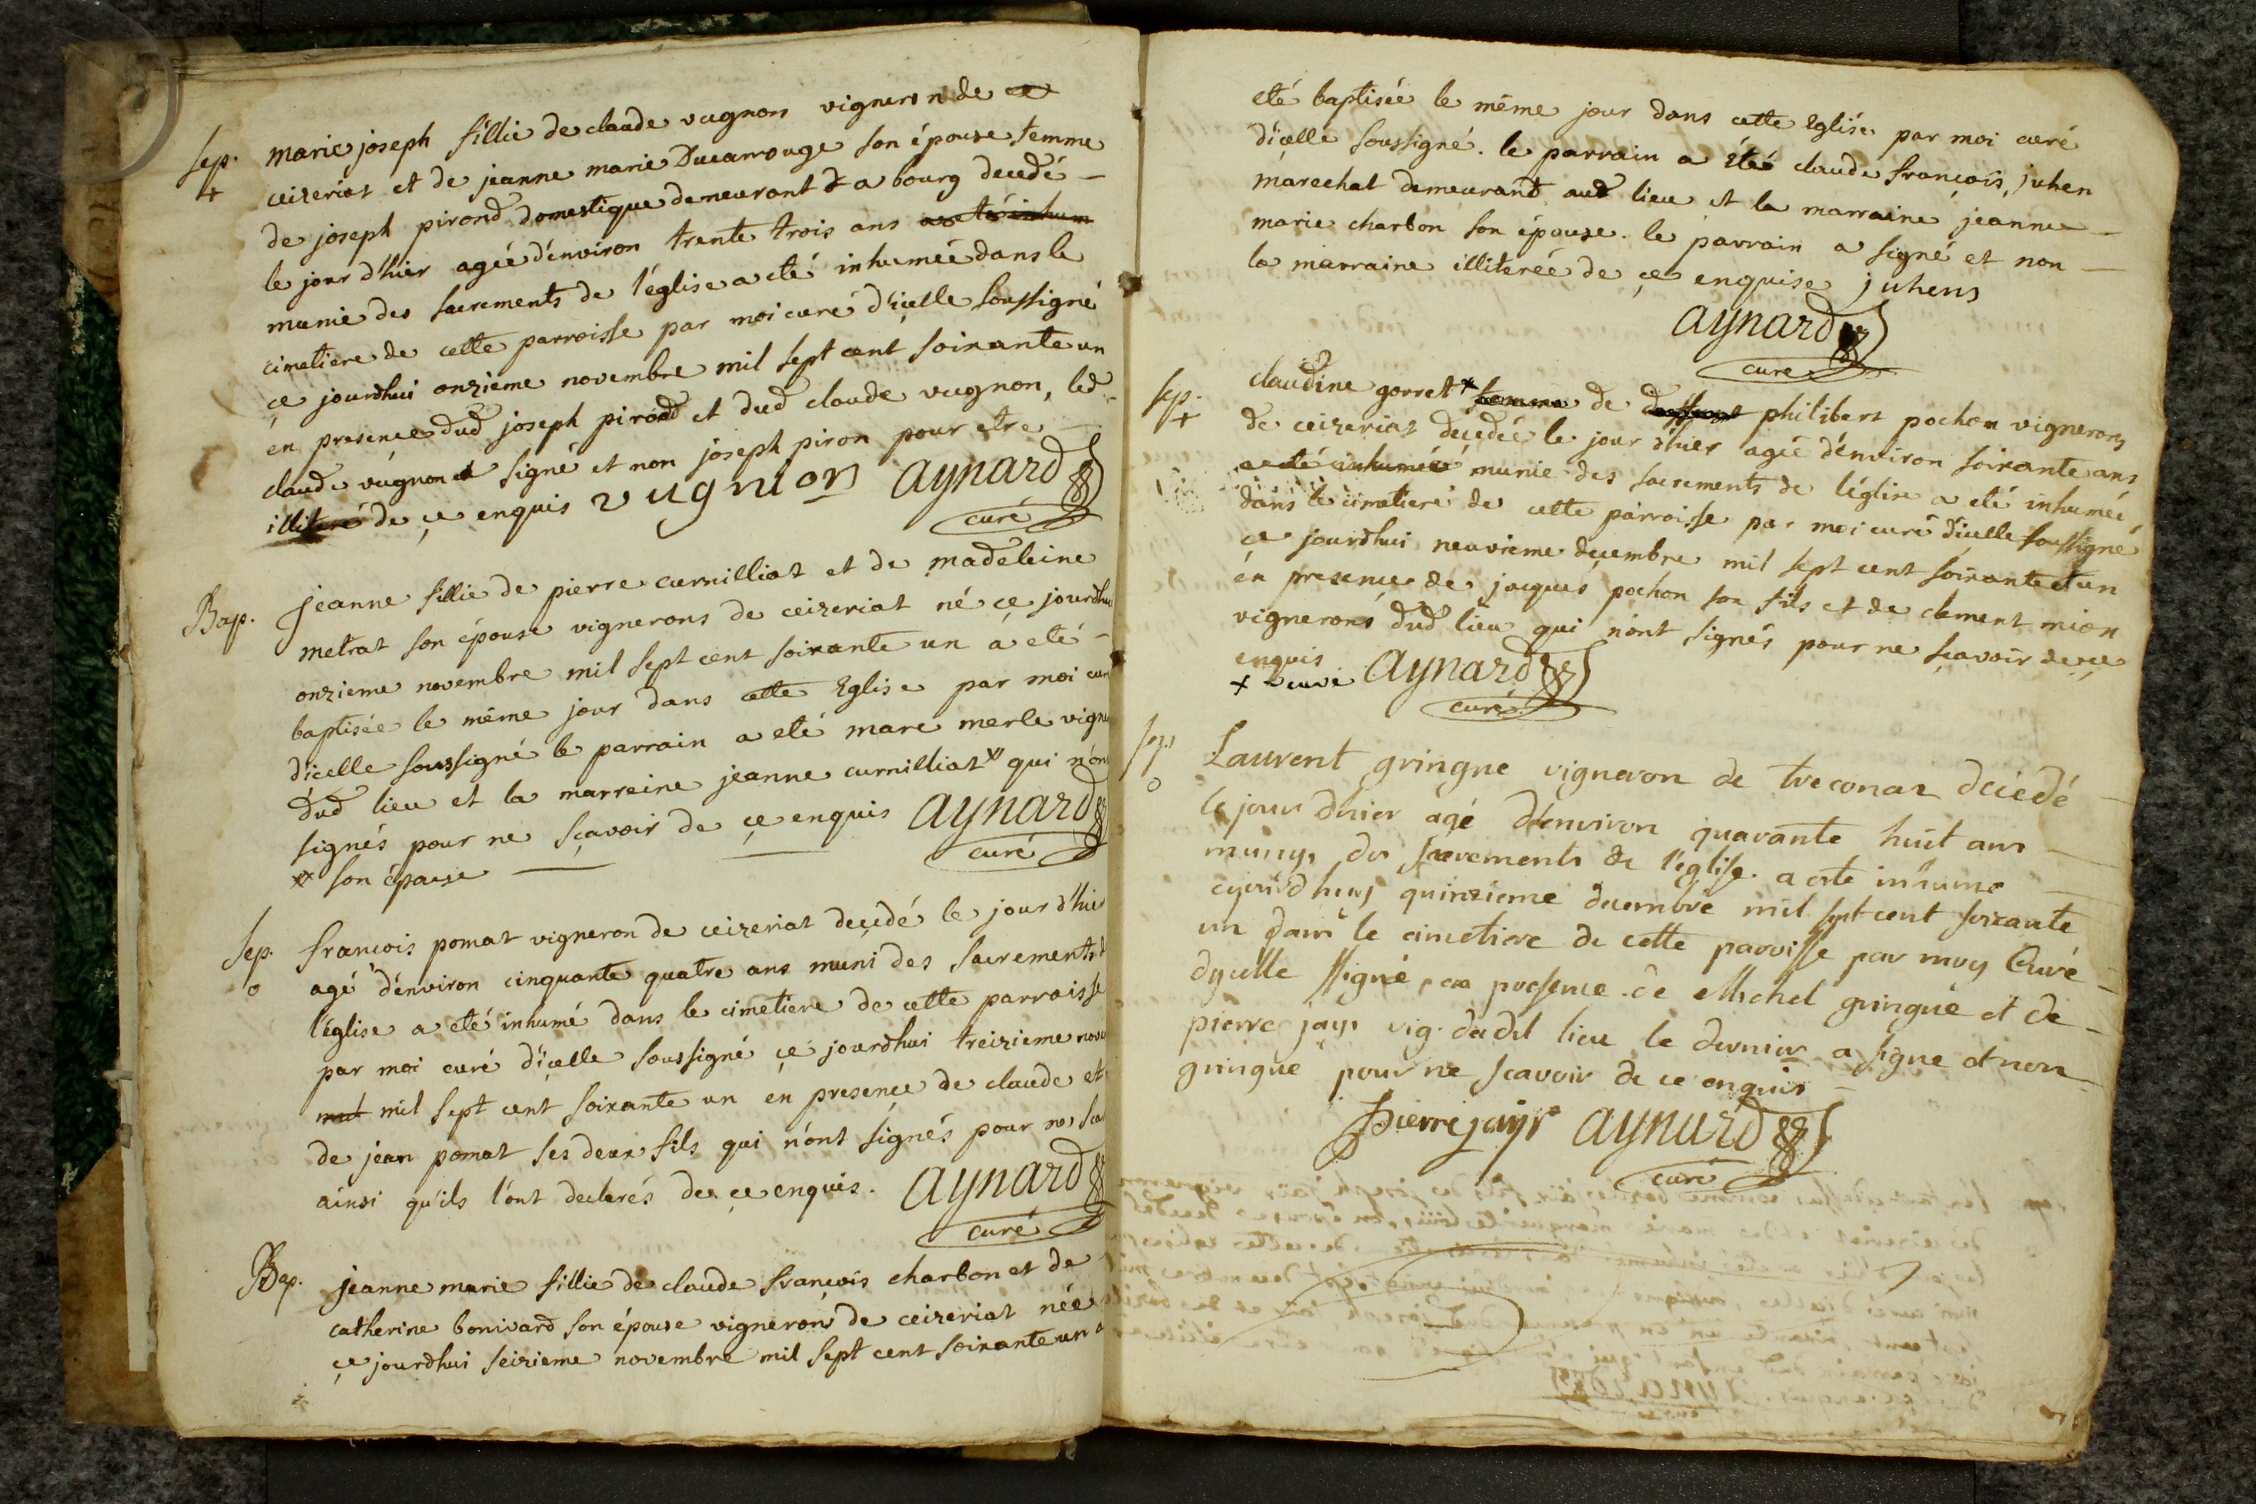 Sep. marie joseph fillie de claude vugnon vigneron de
+ ceizeriat et de jeanne marie Ducarrouge son épouse femme
de joseph pirond domestique demeurant a bourg decedé
le jour d'hier ageé d'environ trente trois ans a eté inhum
munie des sacrements de l'église a eté inhumeé dans le
cimetiere de cette parroisse par moi curé d'icelle soussigné
ce jourdhui onzieme novembre mil sept cent soixante un
en presence dud joseph pirond et dud claude vugnon, led
claude vugnon a signé et non joseph piron pour etre
illiteré de ce enquis vugnion aynard
curé
Bap. Jeanne fillie de pierre curnilliat et de madeleine
metrat son épouse vignerons de ceizeriat né ce jourdhui
onzieme novembre mil sept cent soixante un a eté
baptisée le même jour dans cette Eglise par moi curé
d'icelle soussigné le parrain a eté marc merle vigne
dud lieu et la marreine jeanne curnilliat x qui n'ont
signés pour ne sçavoir de ce enquis aynard
x son épouse curé
Sep. francois pomat vigneron de ceizeriat decedé le jour d'hier
o agé d'environ cinquante quatre ans muni des sacrements d
l'église a eté inhumé dans le cimetiere de cette parroisse
par moi curé d'icelle soussigné ce jourdhui treizieme nove
mil mil sept cent soixante un en presence de claude et
de jean pomat ses deux fils qui n'ont signés pour ne sca
ainsi qu'ils l'ont declarés de ce enquis. aynard
curé
Bap. jeanne marie fillie de claude francois charbon et de
catherine bonivard son épouse vignerons de ceizeriat née
ce jourdhui seizieme novembre mil sept cent soixante un a
eté baptisée le même jour dans cette Eglise par moi curé
d'icelle soussigné. le parrain a été claude françois juhen
marechal demeurand aud lieu et la marraine jeanne
marie charbon son épouse. le parrain a signé et non
la marraine illitereé de ce enquise juhens
aynard
curé
Sep. claudine gorret x femme de deffunt philibert pochon vignerons
+ de ceizeriat decedeé le jour d'hier ageé d'environ soixante ans
a eté inhumeé munie des sacrements de l'église a eté inhumeé
dans le cimetiere de cette parroisse par moi curé d'icelle soussigné
ce jourdhui neuvieme decembre mil sept cent soixante et un
en presence de jacques pochon son fils et de clement mion
vignerons dud lieu qui n'ont signés pour ne sçavoir de ce
enquis aynard
x veuve curé
Sep. Laurent gringue vigneron de treconat décédé
o le jour d'hier agé d'environ quarante huit ans
munys des sacrements de l'église. a esté inhumé
cejourd'huy quinzieme decembre mil sept cent soixante
un dans le cimetiere de cette paroisse par moy Curé
dycelle ssigné, en presence de Michel gringue et de
pierre jayr vig. dudit lieu le dernier a signe et non
gringue pour ne scavoir de ce enquis
pierre jayr aynard
curé